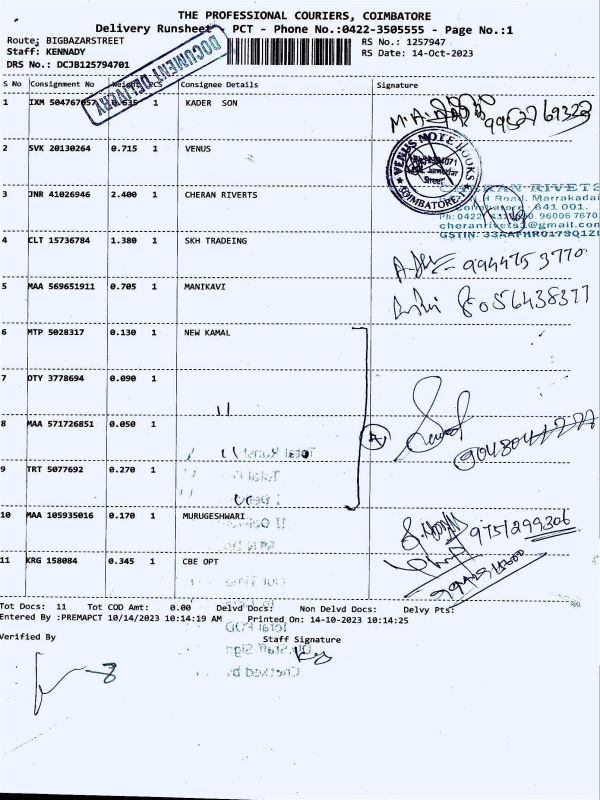 THE PROFESSIONAL COURIERS, COIMBATORE
Delivery Runsheet - PCT - Phone No.:0422-3505555 - Page No.:1
Route: BIGBAZARSTREET RS No.: 1257947
Staff: KENNADY RS Date: 14-Oct-2023
DRS No.: DCJB125794701
DOCUMENT DELIVERY
S No Consignment No Weight PCS Consignee Details Signature
1 IXM 504767057 0.635 1 KADER SON
2 SVK 20130264 0.715 1 VENUS
VENUS NOTE BOOKS
Street
COIMBATORE
3 JNR 41026946 2.400 1 CHERAN RIVERTS
CHERAN RIVETS
H Road, Marrakadai
Coimbatore - 641 001.
cheranrivets1@gmail.com
4 CLT 15736784 1.380 1 SKH TRADEING 9944753770
5 MAA 569651911 0.705 1 MANIKAVI 8056438377
6 MTP 5028317 0.130 1 NEW KAMAL
7 OTY 3778694 0.090 1
8 MAA 571726851 0.050 1
9 TRT 5077692 0.270 1
10 MAA 105935016 0.170 1 MURUGESHWARI 9751299306
11 KRG 158084 0.345 1 CBE OPT
Tot Docs: 11 Tot COD Amt: 0.00 Delvd Docs: Non Delvd Docs: Delvy Pts:
Entered By :PREMAPCT 10/14/2023 10:14:19 AM Printed On: 14-10-2023 10:14:25
Verified By Staff Signature